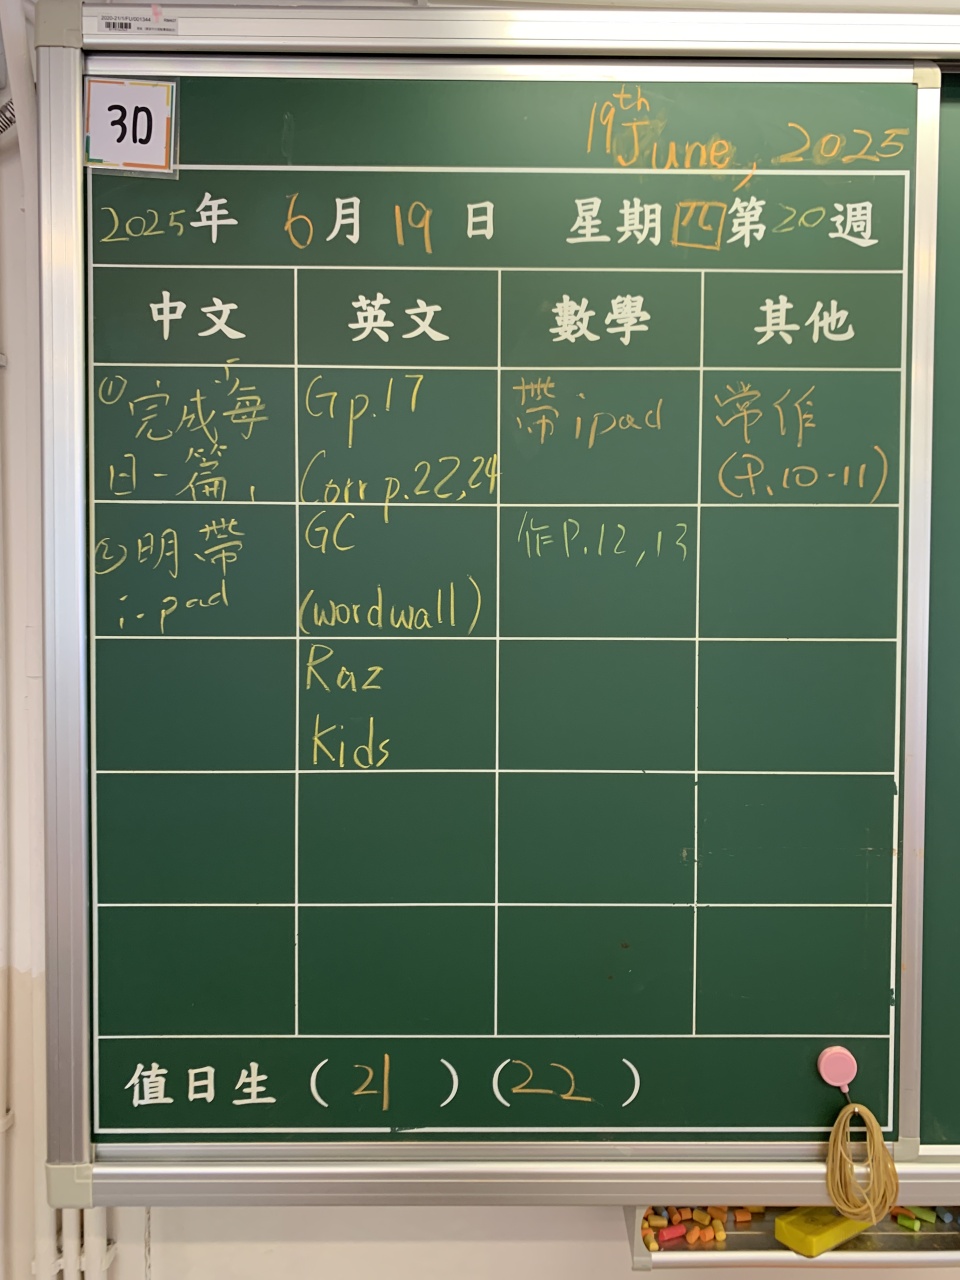 2020-21/1FU/001344
3D
19th June, 2025
2025年 6月 19日 星期四第20週
中文 英文 數學 其他
① 完成每
日一篇,
② 明帶
i-pad
Gp.17
Corr p.22,24
GC
(wordwall)
Raz
Kids
帶ipad
作P.12,13
常作
(P.10-11)
值日生 (21) (22)